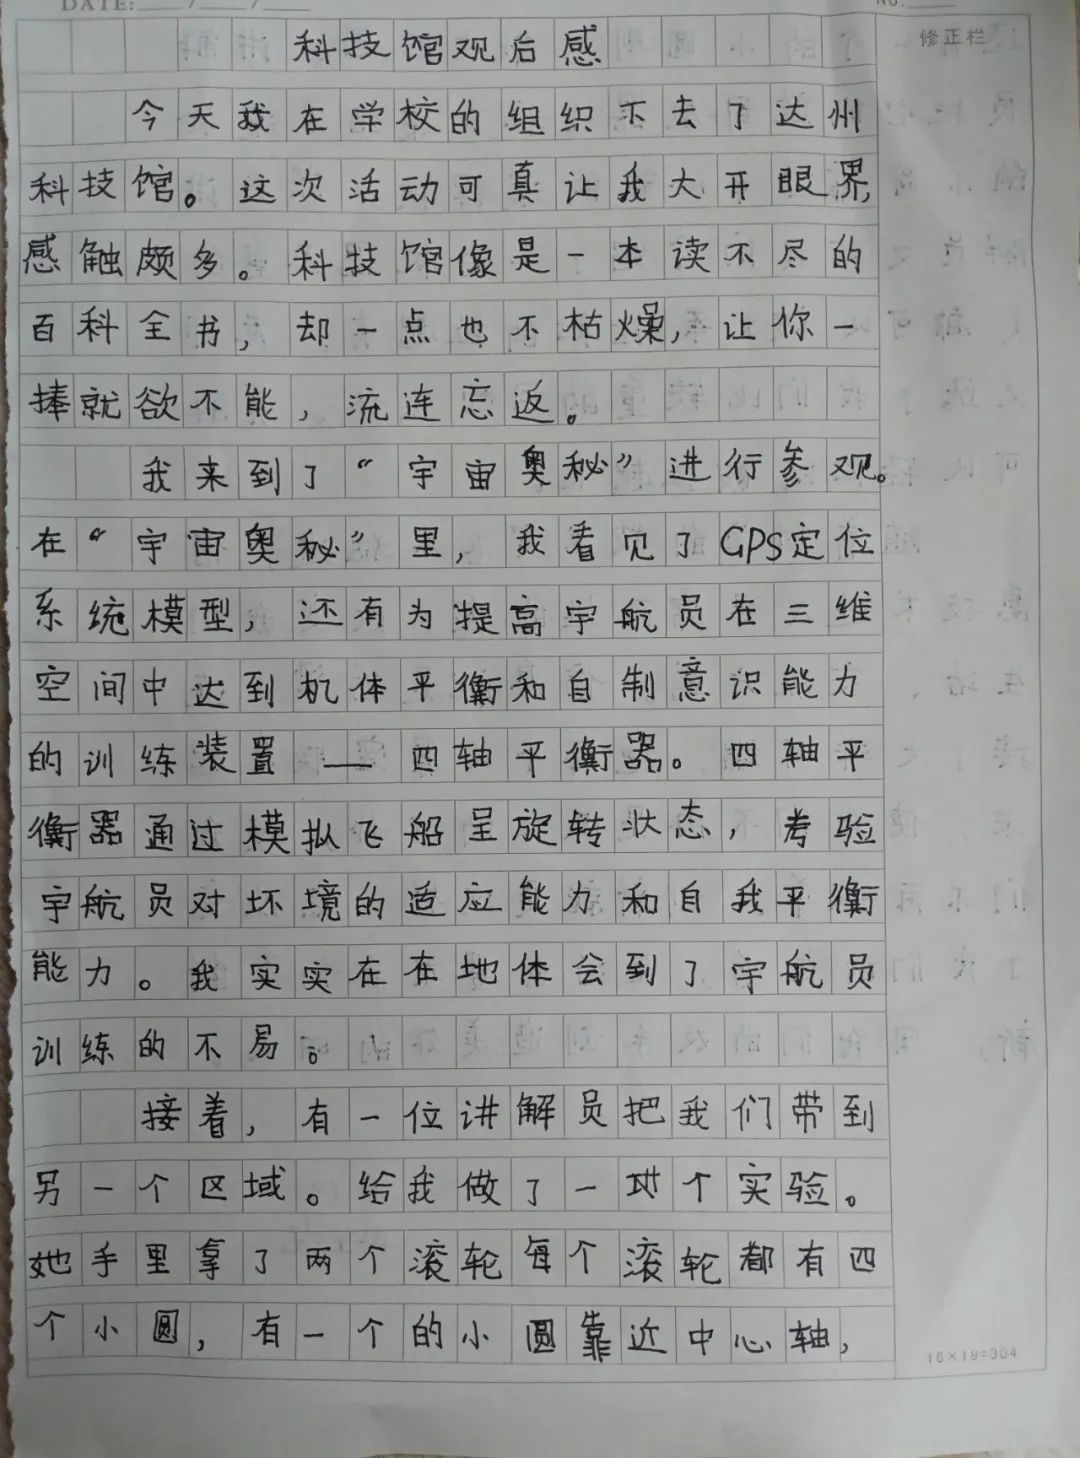 DATE: ___/___/___
NO.
修正栏
科技馆观后感
今天我在学校的组织下去了达州
科技馆。这次活动可真让我大开眼界,
感触颇多。科技馆像是一本读不尽的
百科全书,却一点也不枯燥,让你一
捧就欲不能,流连忘返。
我来到了“宇宙奥秘”进行参观。
在“宇宙奥秘”里,我看见了GPS定位
系统模型,还有为提高宇航员在三维
空间中达到机体平衡和自制意识能力
的训练装置——四轴平衡器。四轴平
衡器通过模拟飞船呈旋转状态,考验
宇航员对环境的适应能力和自我平衡
能力。我实实在在地体会到了宇航员
训练的不易。
接着,有一位讲解员把我们带到
另一个区域。给我做了一个实验。
她手里拿了两个滚轮每个滚轮都有四
个小圆,有一个的小圆靠近中心轴,
16×19=304